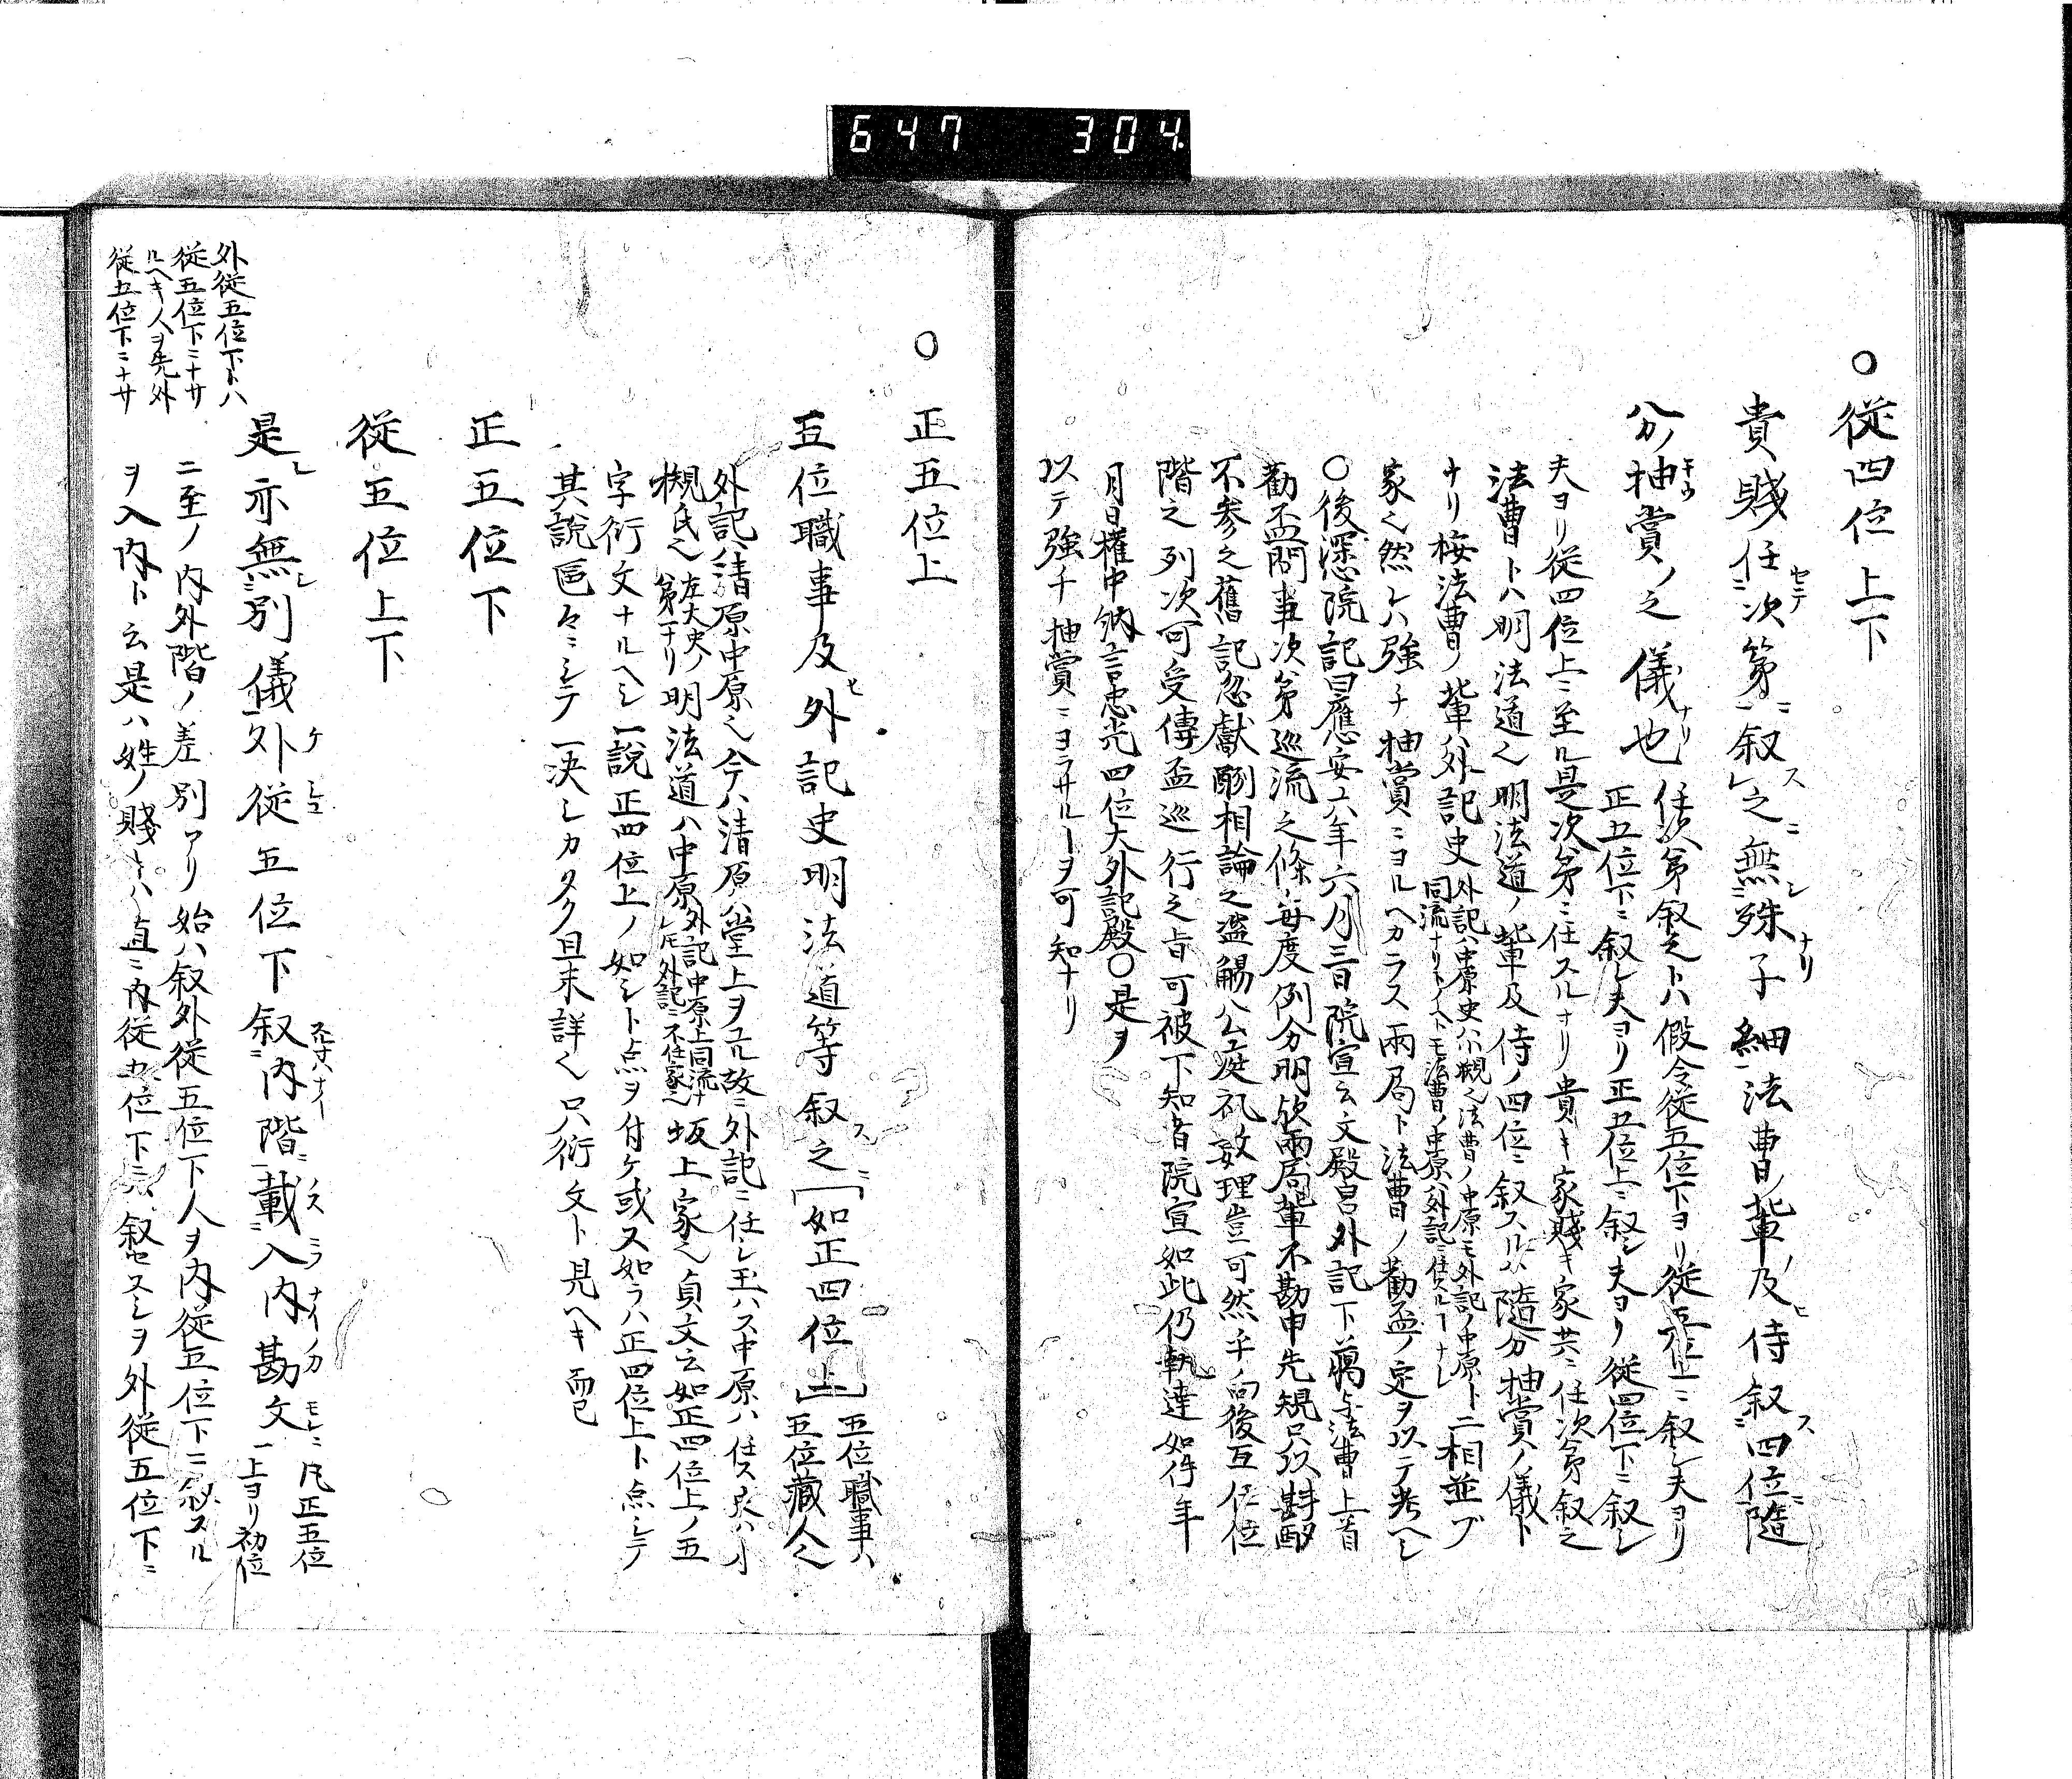 647 304.
○従四位上下
貴賤任次第叙之無殊子細法曹輩及侍叙四位隨
分ノ抽賞ノ之儀也
任次第叙之トハ假令従五位下ヨリ従五位上ニ叙シ夫ヨリ
正五位下ニ叙シ夫ヨリ正五位上ニ叙シ夫ヨリ従四位下ニ叙シ
夫ヨリ従四位上ニ至ル是次第ニ任スルナリ貴キ家賤キ家共ニ任次第叙之
法曹トハ明法道也明法道ノ輩及侍ノ四位ニ叙スルハ隨分抽賞ノ儀ト
ナリ按法曹ノ輩ハ外記史
外記ハ中原史ハ小槻也法曹ノ中原モ外記ノ中原ト
同流ナリトイヘトモ法曹ノ中原ハ外記ニ任スルーナシ
二相並ブ
家也然レハ強チ抽賞ニヨルヘカラス兩局ト法曹ノ勸盃ノ定ヲ以テ考ヘシ
○後深心院記曰應安六年六月三日院宣云文殿召外記下萬与法曹上首
勸盃問事次第巡流之條毎度例分明欤兩局輩不勘申先規只以斟酌
不参之舊記忽獻酬相論之盗觴公庭礼敎理豈可然乎向後互任位
階之列次可受傳盃巡行之旨可被下知者院宣如此仍執達如件年
月日權中納言忠光四位大外記殿○是ヲ
以テ強チ抽賞ニヨラサルーヲ可知ナリ
○正五位上
五位職事及外記史明法道等叙之「如正四位上」
五位職事ハ
五位藏人也
外記ハ清原中原也今ハ清原ハ堂上ヲユル故ニ外記ニ任シ玉ハス中原ハ任ス史ハ小
槻氏也
左大史ノ
第一ナリ
明法道ハ中原
外記中原上同流ナ
レ𪜈外記ニ不任家也
坂上家也貞文云如正四位上ノ五
字衍文ナルヘシ一説正四位上ノ如シト点ヲ付ケ或又如ラハ正四位上ト点シテ
其説區々ニシテ一決シカタク且未詳也只衍文ト見ヘキ而已
正五位下
従五位上下
是亦無別儀外従五位下叙内階載入内勘文
凡正五位
上ヨリ初位
ニ至ノ内外階ノ差別アリ始ハ叙外従五位下人ヲ内従五位下ニ叙スル
ヲ入内ト云是ハ姓ノ賤ーハ直ニ内従五位下ニハ叙セスシヲ外従五位下ニ
外従五位下トハ
従五位下ニナサ
ルヘキ人ヲ先外
従五位下ニナサ